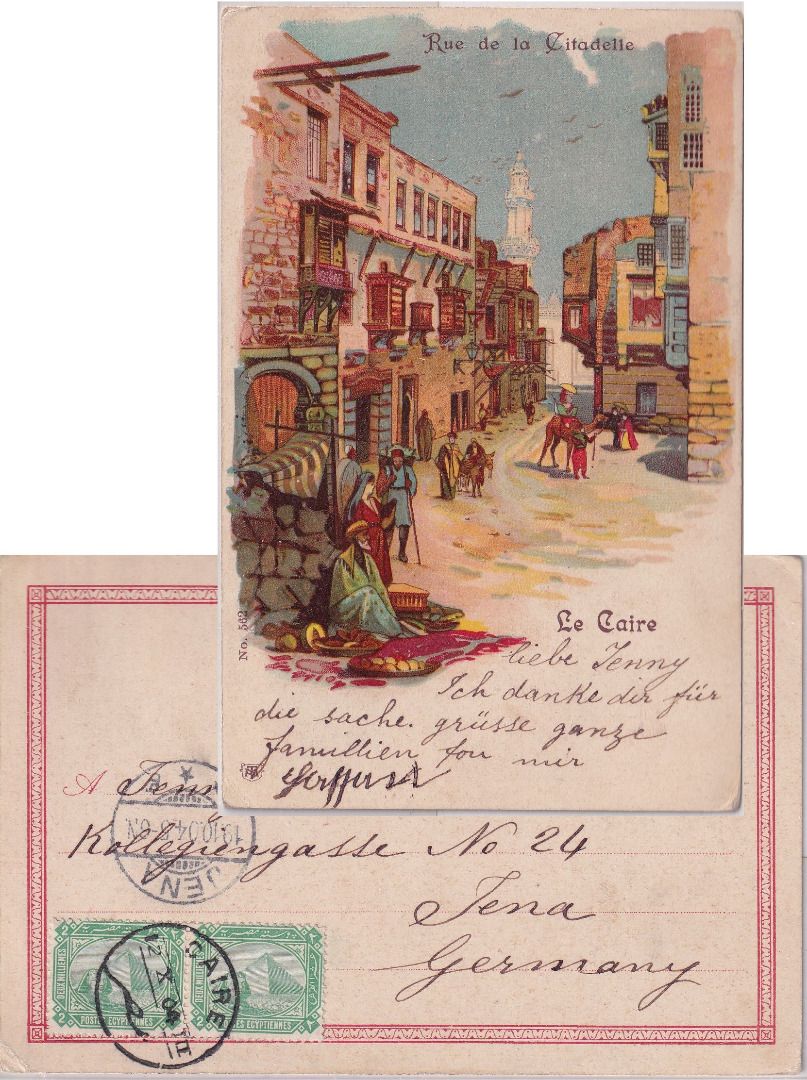 Rue de la Citadelle
No. 562
Le Caire
liebe Jenny
Ich danke dir für
die sache. grüsse ganze
famillien fon mir
A Jenn
Kollegiengasse No 24
Jena
Germany
JENA
CAIRE
12 X 04
DEUX MILLIEMES
POSTES EGYPTIENNES
DEUX MILLI
ES EGYPTIENNES